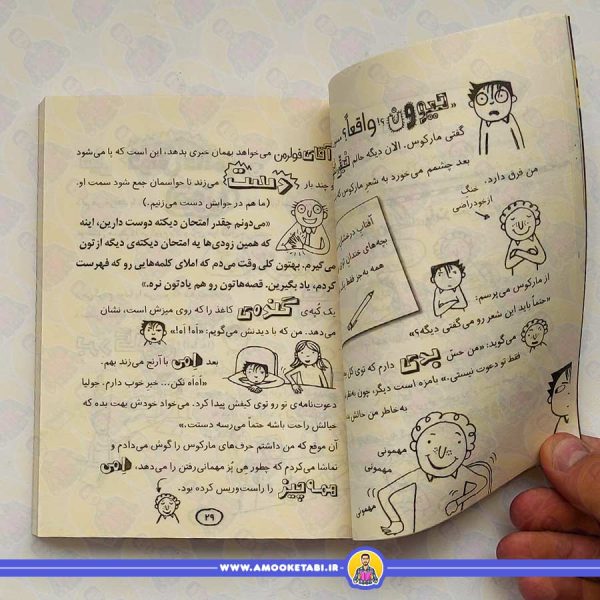 «حیوون؟! واقعاً؟
گفتی مارکوس. الان دیگه حالم
بعد چشمم می‌خورد به شعر مارکوس که
من فرق دارد.
خنگ
ازخودراضی
آفتاب درخشان
بچه‌های خندان
همه به‌جز فقط یک
از مارکوس می‌پرسم:
«حتماً باید این شعر رو می‌گفتی دیگه؟»
می‌گوید: «من حس بدی دارم که توی کل
فقط تو دعوت نیستی.» بامزه است دیگر، چون به‌نظر
به خاطر من حالش بد
مهمونی
مهمونی
مهمونی
مهمونی
آقای فولرمن می‌خواهد بهمان خبری بدهد، این است که پا می‌شود
و چند بار دست می‌زند تا حواسمان جمع شود سمت او.
(ما هم در جوابش دست می‌زنیم.)
«می‌دونم چقدر امتحان دیکته دوست دارین، اینه
که همین زودی‌ها یه امتحان دیکته‌ی دیگه ازتون
می‌گیرم. بهتون کلی وقت می‌دم که املای کلمه‌هایی رو که فهرست
کردم، یاد بگیرین. قصه‌هاتون رو هم یادتون نره.»
یک کُپه‌ی گنده‌ی کاغذ را که روی میزش است، نشان
می‌دهد. من که با دیدنش می‌گویم: «اَه! اَه!»
بعد اِمی با آرنج می‌زند بهم.
«اَه‌اَه نکن... خبر خوب دارم. جولیا
دعوت‌نامه‌ی تو رو توی کیفش پیدا کرد. می‌خواد خودش بهت بده که
خیالش راحت باشه حتماً می‌رسه دستت.»
آن موقع که من داشتم حرف‌های مارکوس را گوش می‌دادم و
تماشا می‌کردم که چطور هِی پُز مهمانی رفتن را می‌دهد، اِمی
همه‌چیز را راست‌وریس کرده بود.
۲۹
WWW.AMOOKETABI.IR